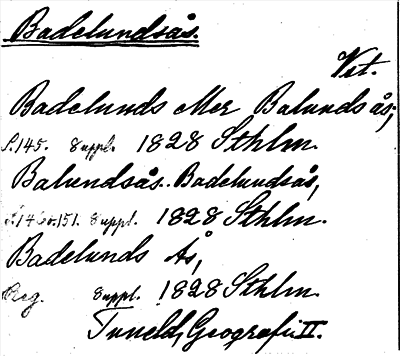 Badelundsås.
Vst.
Badelunds eller Balunds ås,
s. 145. Suppl. 1828 Sthlm.
Balundsås. Badelundsås,
s. 146 o. 151. Suppl. 1828 Sthlm.
Badelunds Ås,
Reg. Suppl. 1828 Sthlm.
Tuneld, Geografi II.